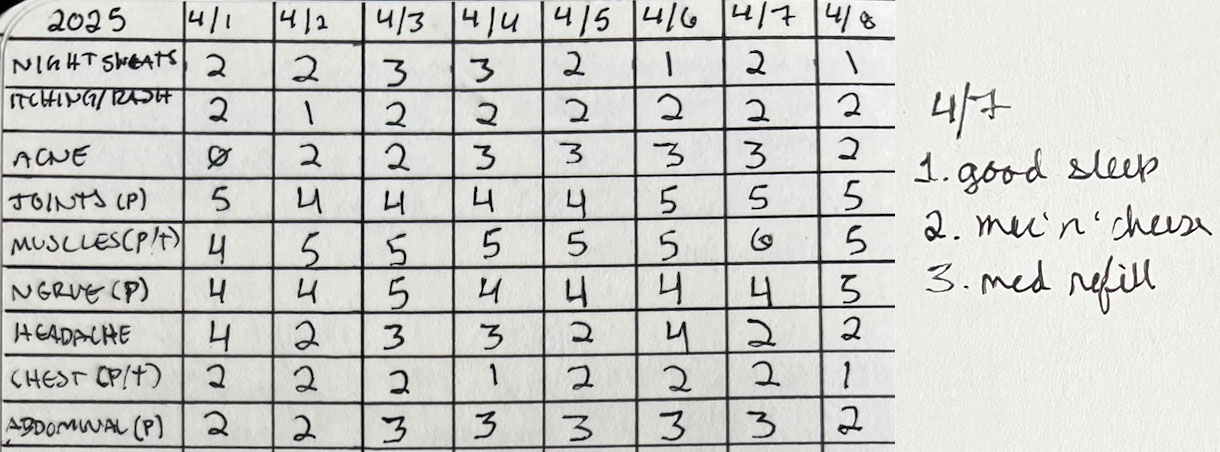 2025 4/1 4/2 4/3 4/4 4/5 4/6 4/7 4/8
NIGHT SWEATS 2 2 3 3 2 1 2 1
ITCHING/RASH 2 1 2 2 2 2 2 2
ACNE 0 2 2 3 3 3 3 2
JOINTS (P) 5 4 4 4 4 5 5 5
MUSCLES (P/T) 4 5 5 5 5 5 6 5
NERVE (P) 4 4 5 4 4 4 4 5
HEADACHE 4 2 3 3 2 4 2 2
CHEST (P/T) 2 2 2 1 2 2 2 1
ABDOMINAL (P) 2 2 3 3 3 3 3 2
4/7
1. good sleep
2. mac 'n' cheese
3. med refill